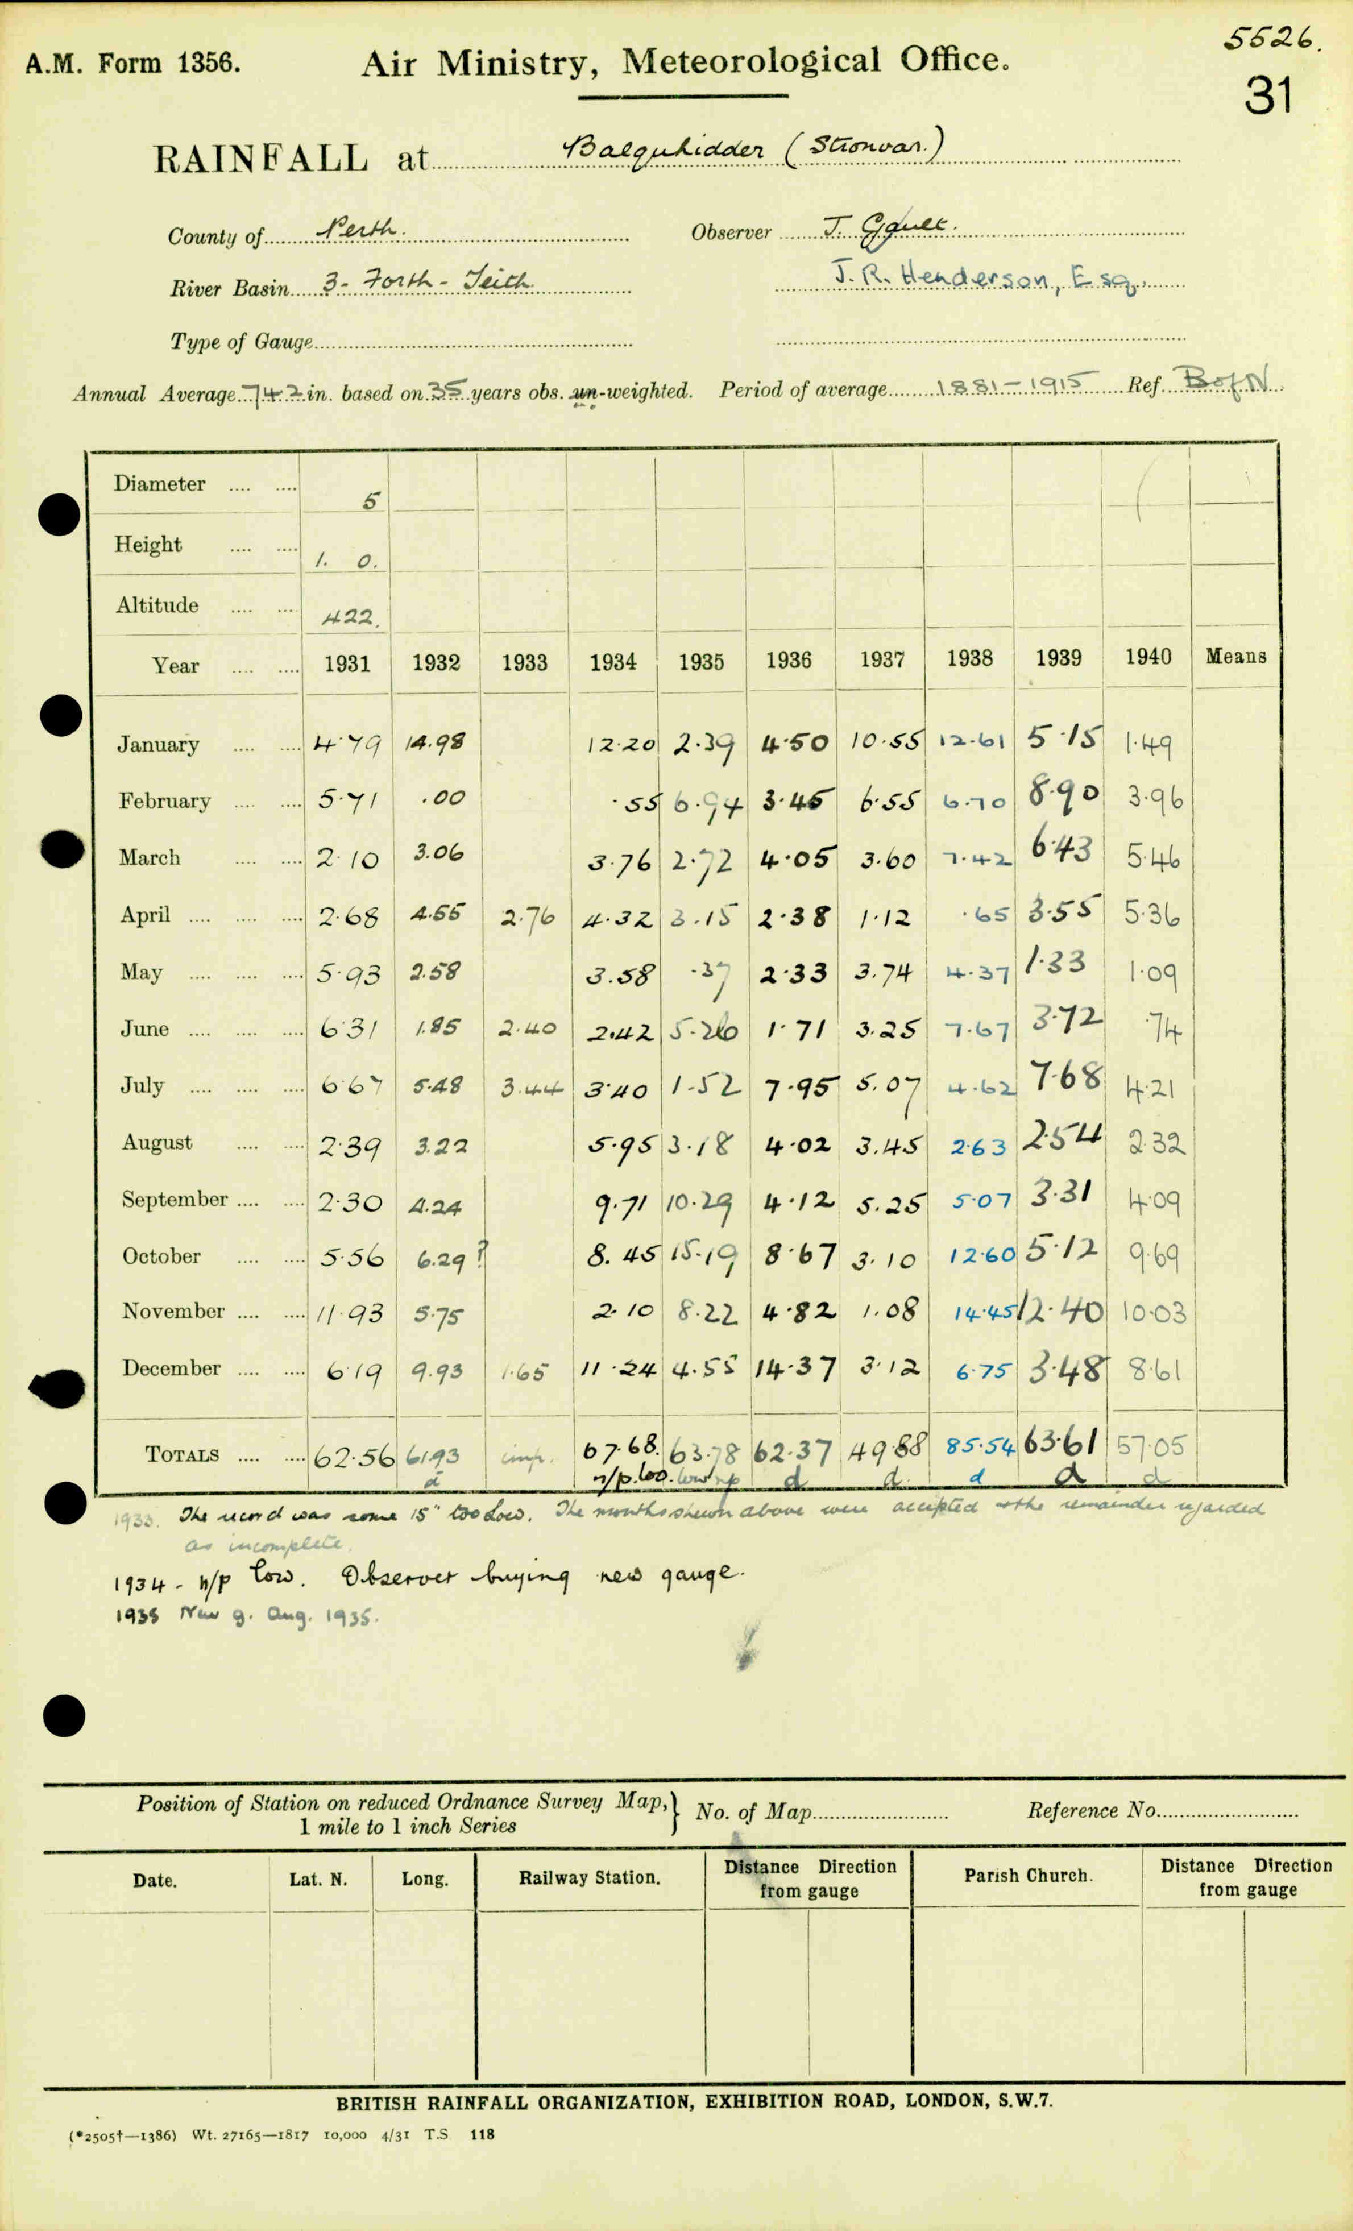 5526.
A.M. Form 1356. Air Ministry, Meteorological Office.
31
RAINFALL at Balquhidder (Stronvar.)
County of Perth. Observer J. Gault.
River Basin 3- Forth - Teith J.R. Henderson, Esq.
Type of Gauge
Annual Average 74.2 in. based on 35 years obs. un-weighted. Period of average 1881-1915 Ref. B of N
Diameter 5
Height 1. 0.
Altitude 422.
Year 1931 1932 1933 1934 1935 1936 1937 1938 1939 1940 Means
January 4.79 14.98 12.20 2.39 4.50 10.55 12.61 5.15 1.49
February 5.71 .00 .55 6.94 3.45 6.55 6.70 8.90 3.96
March 2.10 3.06 3.76 2.72 4.05 3.60 7.42 6.43 5.46
April 2.68 4.55 2.76 4.32 3.15 2.38 1.12 .65 3.55 5.36
May 5.93 2.58 3.58 .37 2.33 3.74 4.37 1.33 1.09
June 6.31 1.85 2.40 2.42 5.26 1.71 3.25 7.67 3.72 .74
July 6.67 5.48 3.44 3.40 1.52 7.95 5.07 4.62 7.68 4.21
August 2.39 3.22 5.95 3.18 4.02 3.45 2.63 2.54 2.32
September 2.30 4.24 9.71 10.29 4.12 5.25 5.07 3.31 4.09
October 5.56 6.29? 8.45 15.19 8.67 3.10 12.60 5.12 9.69
November 11.93 5.75 2.10 8.22 4.82 1.08 14.45 12.40 10.03
December 6.19 9.93 1.65 11.24 4.55 14.37 3.12 6.75 3.48 8.61
TOTALS 62.56 61.93 imp. 67.68. 63.78 62.37 49.88 85.54 63.61 57.05
d n/p. too. low np d d d d d
1933. The record was some 15" too low. The months shewn above were accepted & the remainder regarded
as incomplete.
1934 - n/p low. Observer buying new gauge.
1935 New g. Aug. 1935.
Position of Station on reduced Ordnance Survey Map, } No. of Map Reference No.
1 mile to 1 inch Series
Date. Lat. N. Long. Railway Station. Distance Direction from gauge Parish Church. Distance Direction from gauge
BRITISH RAINFALL ORGANIZATION, EXHIBITION ROAD, LONDON, S.W.7.
(*2505†—1386) Wt. 27165—1817 10,000 4/31 T.S 118